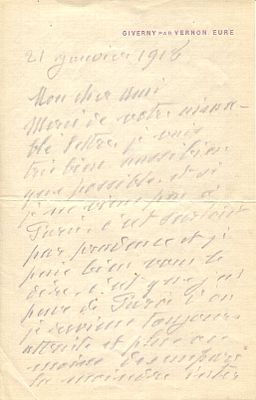 GIVERNY PAR VERNON. EURE
21 janvier 1916
Mon cher ami
Merci de votre aima-
ble lettre, je vais
très bien aussi bien
que possible, et si
je ne viens pas à
Paris, c'est surtout
par prudence et je
puis bien vous le
dire, c'est que j'ai
peur de Paris
je reviens toujours
et plus ou
moins désemparé
la moindre